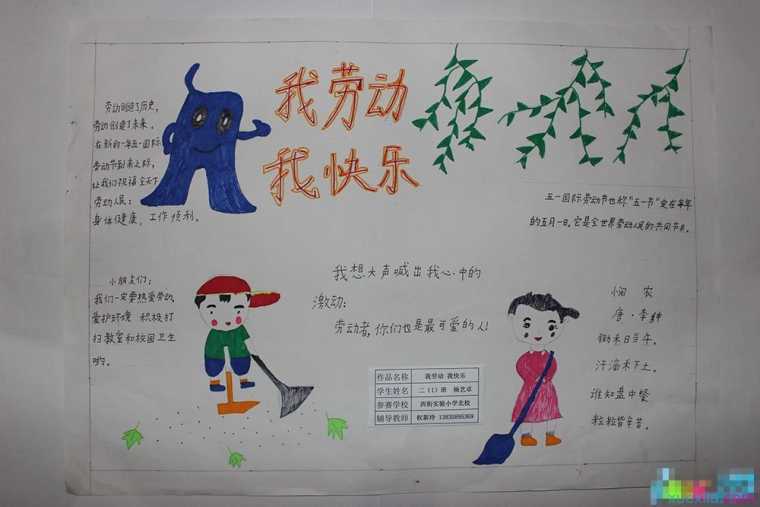 我劳动
我快乐
劳动创造了历史，
劳动创造了未来。
在新的一年五一国际
劳动节到来之际，
让我们祝福全天下
劳动人民：
身体健康，工作顺利。
五一国际劳动节也称“五一节”定在每年
的五月一日。它是全世界劳动人民的共同节日。
小朋友们：
我们一定要热爱劳动，
爱护环境 积极打
扫教室和校园卫生
哟。
我想大声喊出我心中的
激动：
劳动者，你们也是最可爱的人！
悯 农
唐·李绅
锄禾日当午，
汗滴禾下土。
谁知盘中餐
粒粒皆辛苦。
作品名称 我劳动 我快乐
学生姓名 二（1）班 杨艺卓
参赛学校 西街实验小学北校
辅导教师